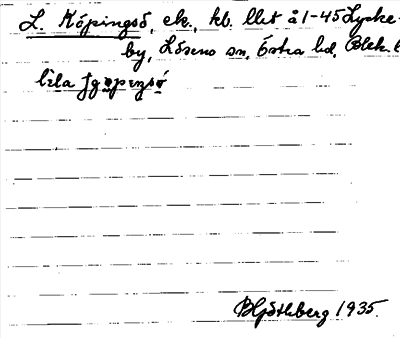 L. Köpingsö, ek., kb. llet å 1-45 Lycke-
by, Lösens sn, Östra hd, Blek. l
lìla
Hjorthberg 1935.